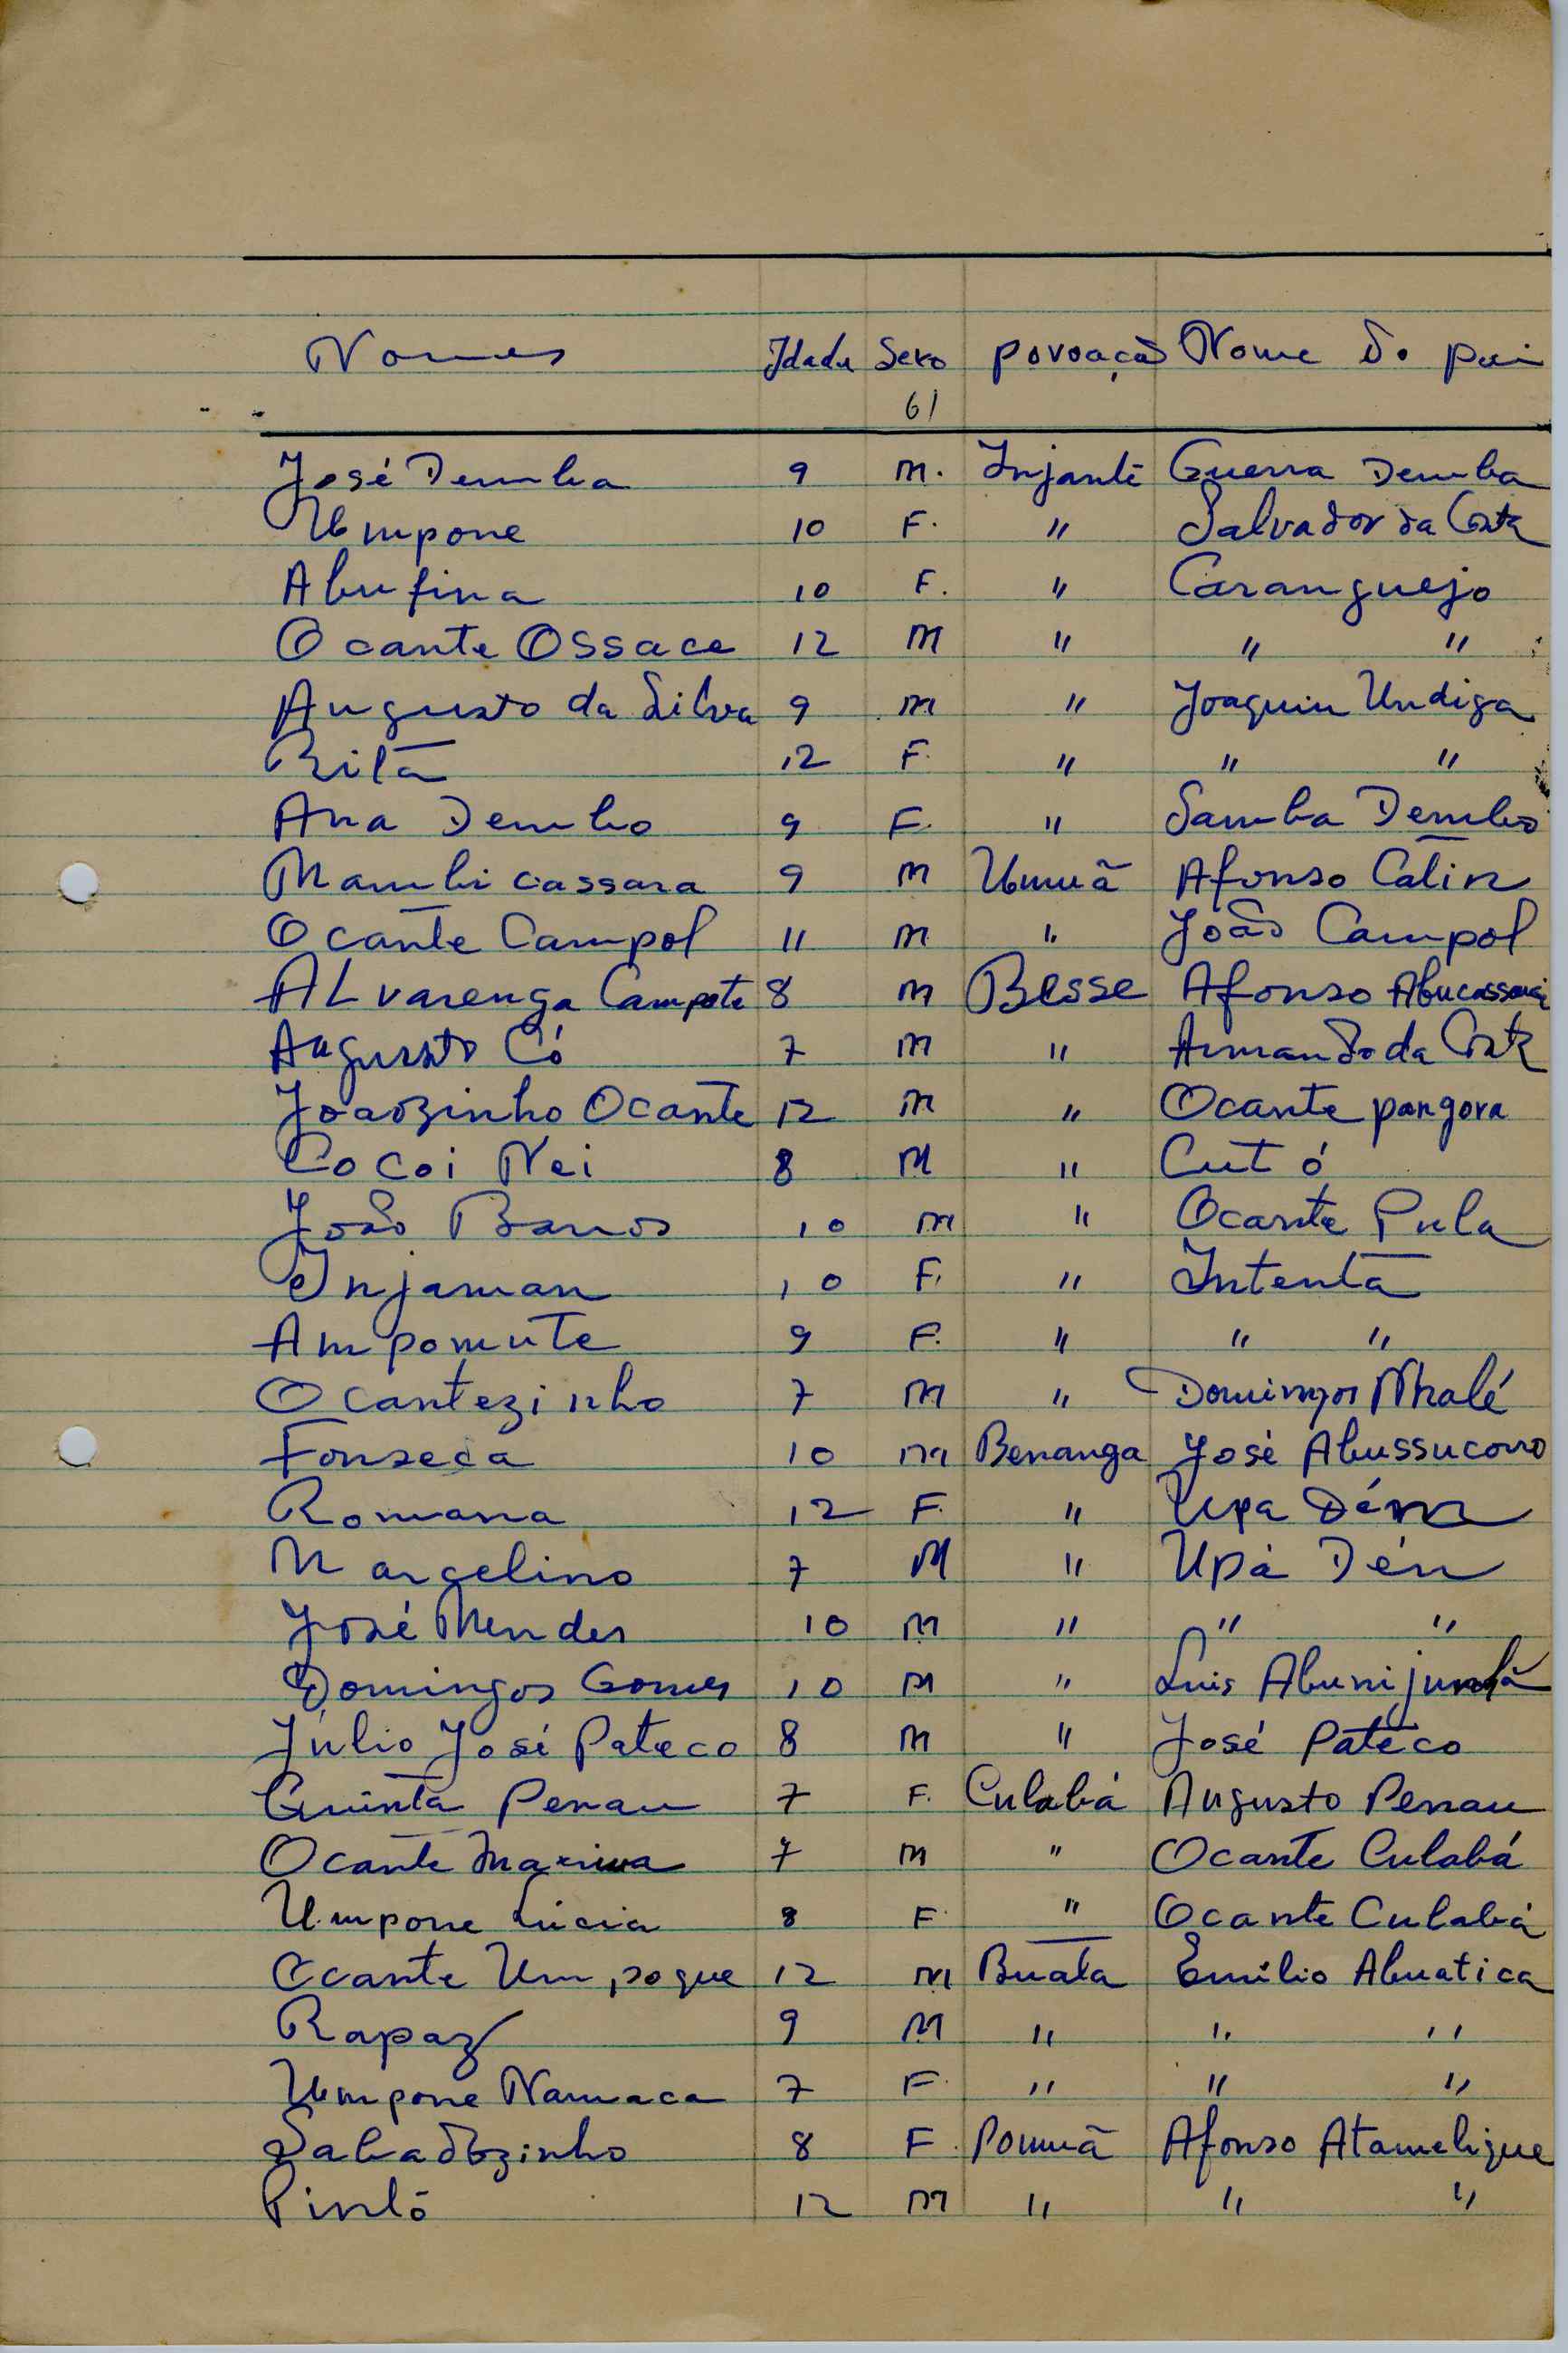 Nomes Idade Sexo povoação Nome do pai
61
José Demba 9 M. Injanté Guerra Demba
Umpone 10 F. " Salvador da Costa
Abufina 10 F. " Caranguejo
Ocante Ossace 12 M " " "
Augusto da Silva 9 M " Joaquim Undiga
Rita 12 F. " " "
Ana Dembo 9 F. " Samba Dembo
Mambi cassara 9 M Umuã Afonso Catin
Ocante Campol 11 M " João Campol
ALvarenga Campote 8 M Besse Afonso
Augusto Có 7 M " Armando da Costa
Joaozinho Ocante 12 M " Ocante pongora
Cocoi Nei 8 M " Cut ó
João Barros 10 M " Ocante Pula
Injaman 10 F. " Intenta
Ampomute 9 F. " " "
Ocantezinho 7 M " Domingos Nhalé
Fonseca 10 M Benanga José Abussucorro
Romana 12 F. " Upa
Marcelino 7 M " Upá Dén
José Mendes 10 M " " "
Domingos Gomes 10 M " Luis
Júlio José Pateco 8 M " José Pateco
Quinta Penau 7 F. Culabá Augusto Penau
Ocante 7 M " Ocante Culabá
Umpone Lúcia 8 F " Ocante Culabá
Ocante 12 M Buata Emílio Abuatica
Rapaz 9 M " " "
Umpone Namaca 7 F. " " "
Sabadozinho 8 F. Pomuã Afonso Atamelique
Pintó 12 M " " "